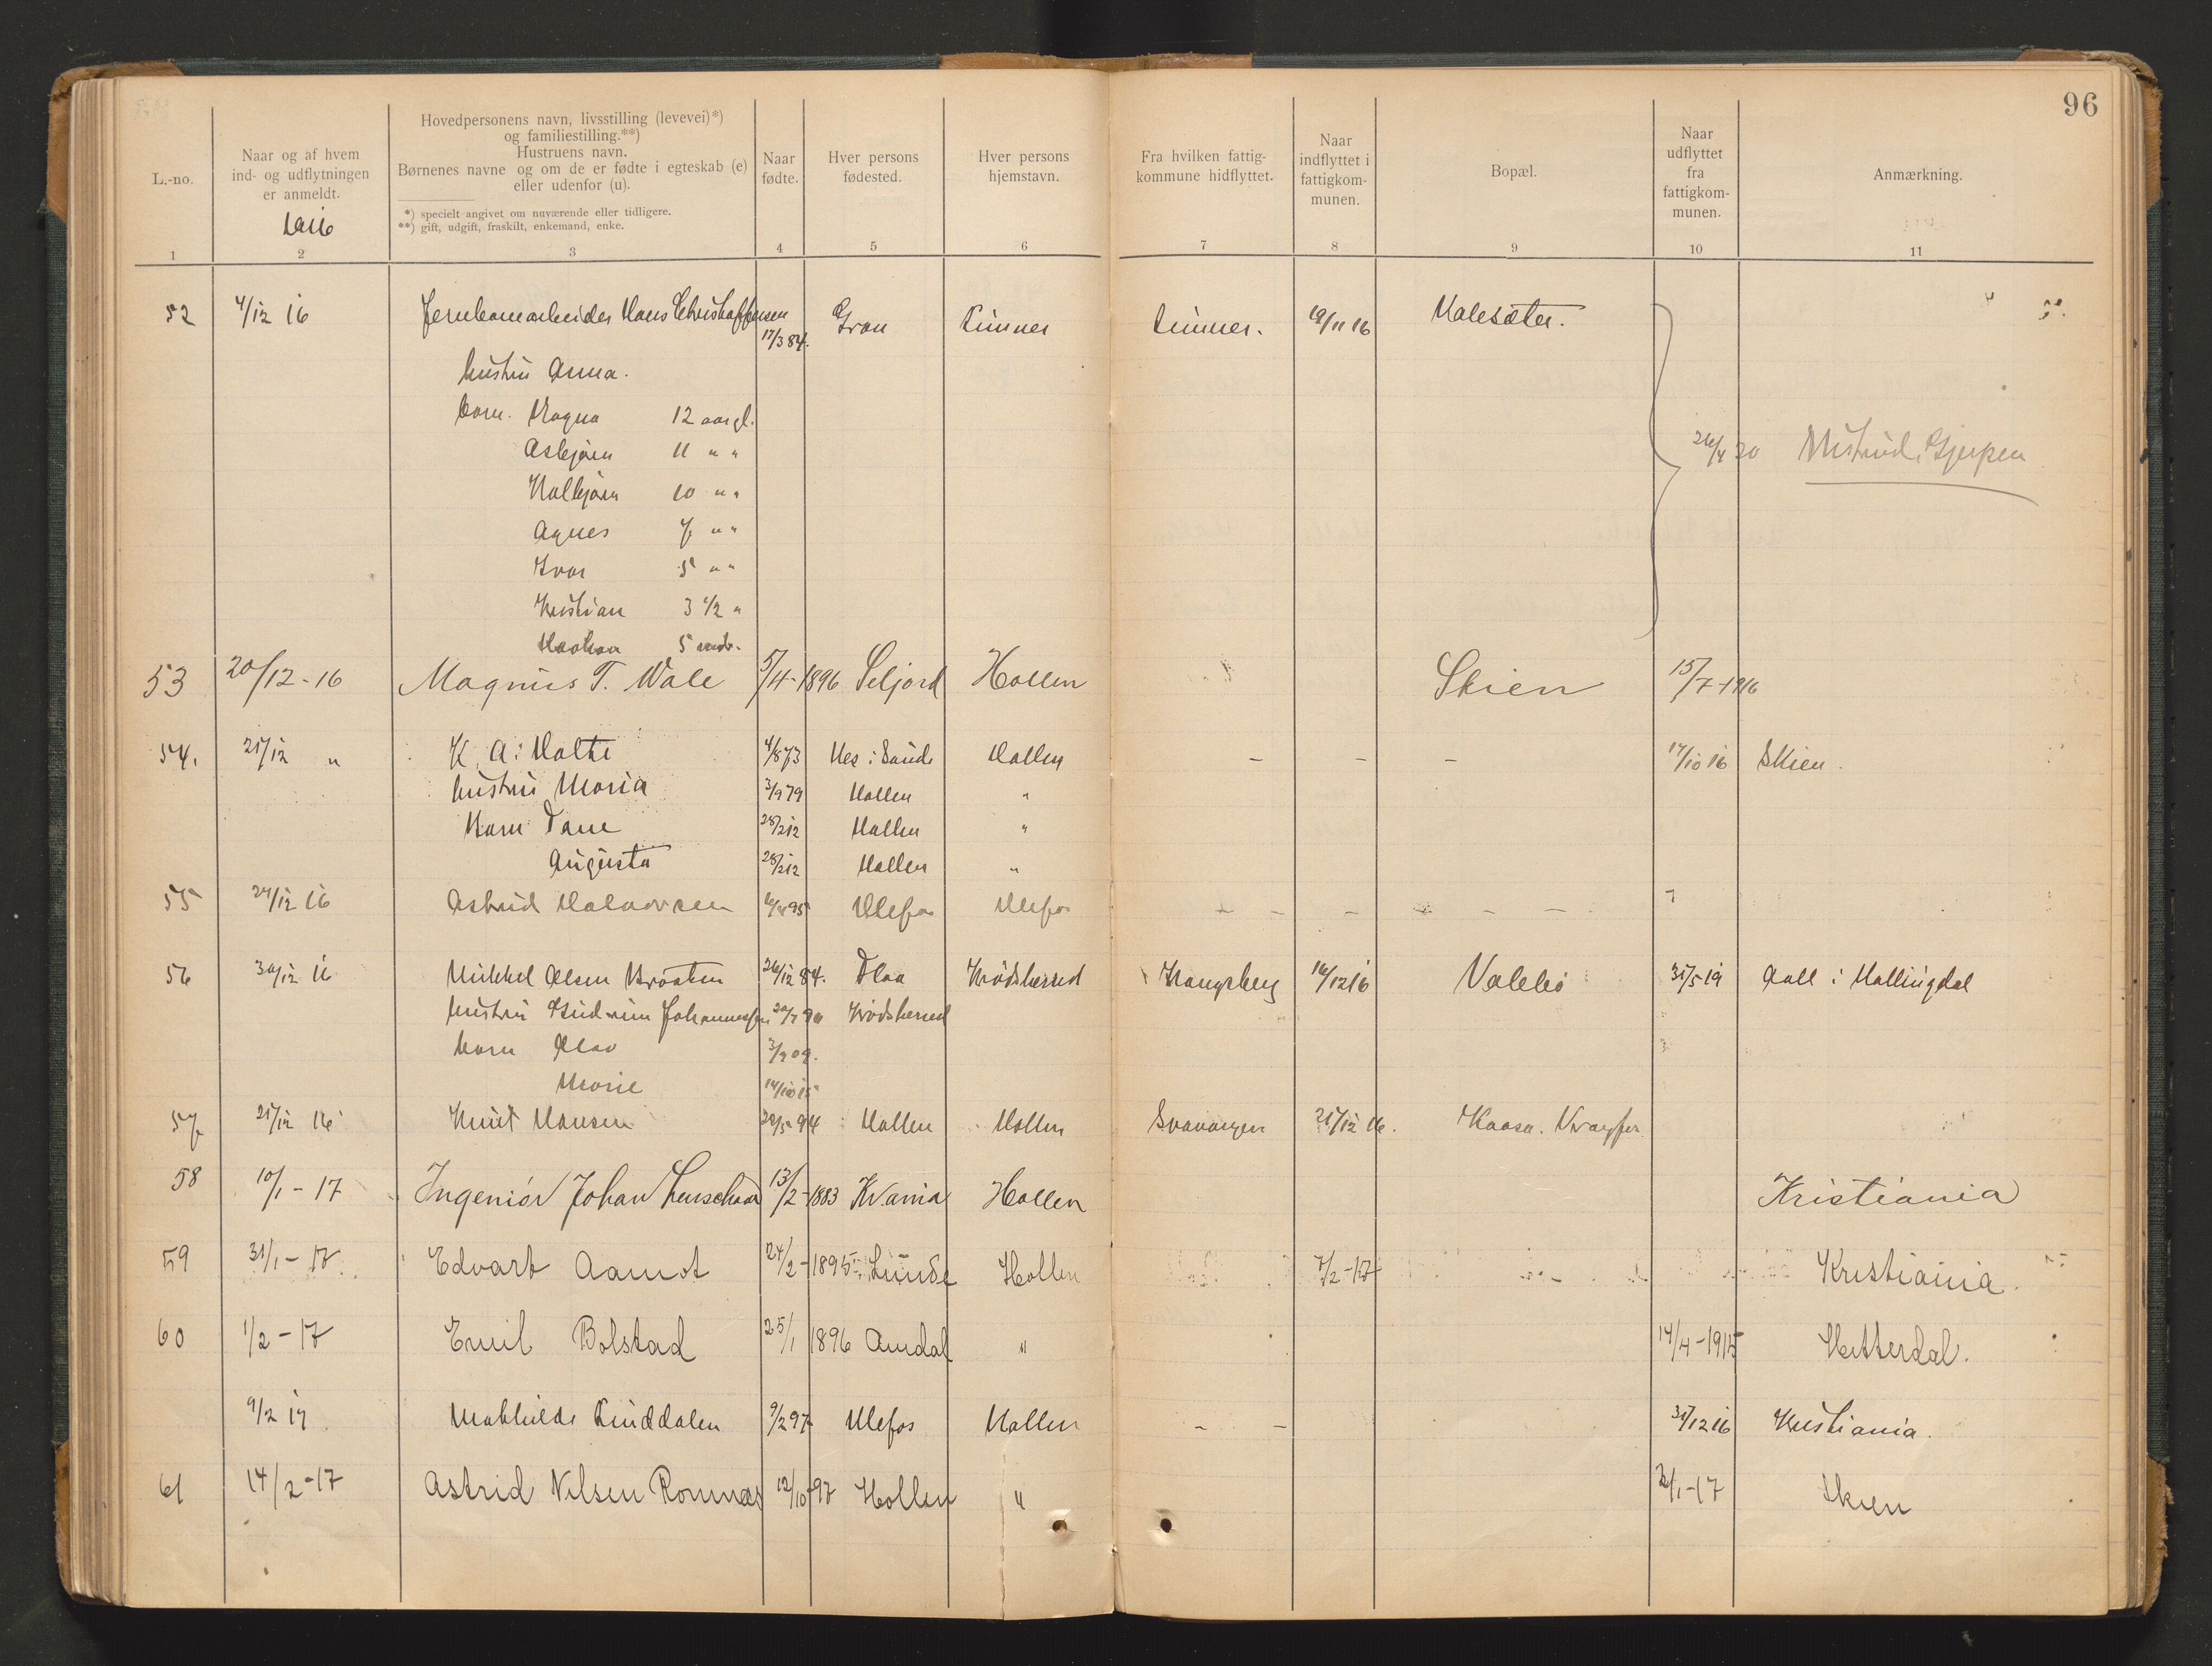 96
L.-no.
Naar og af hvem
ind- og udflytningen
er anmeldt.
1916
Hovedpersonens navn, livsstilling (levevei)*)
og familiestilling.**)
Hustruens navn.
Børnenes navne og om de er fødte i egteskab (e)
eller udenfor (u).
*) specielt angivet om nuværende eller tidligere.
**) gift, ugift, fraskilt, enkemand, enke.
Naar
fødte.
Hver persons
fødested.
Hver persons
hjemstavn.
Fra hvilken fattig-
kommune hidflyttet.
Naar
indflyttet i
fattigkom-
munen.
Bopæl.
Naar
udflyttet
fra
fattigkom-
munen.
Anmærkning.
1 2 3 4 5 6 7 8 9 10 11
52 4/12 16 Jernbanearbeider Hans Christoffersen 17/3 84. Gran Lunner Lunner. 19/11 16 Valesæter.
hustru Anna.
barn. Magna 12 aar gl.
Asbjørn 11 " "
Halbjørn 10 " " 26/4 20 Gjerpen
Agnes 7 " "
Ivar 5 " "
Kristian 3 1/2 "
Haakon 5 mdr.
53 20/12-16 Magnus T. Vale 5/4-1896 Seljord Hollen Skien 15/7-1916
54. 21/12 " K. A. Holte 4/8 73 Næs i Sande Hollen - - - 17/10 16 Skien.
hustru Maria 3/9 79 Hollen "
Barn Tone 28/2 12 Hollen "
Augusta 28/2 12 Hollen "
55 27/12 16 Astrid Halvorsen Ulefos Ulefos - - - - - -
56 30/12 16 Mikkel Olsen Braaten 26/12 84. Flaa Krødsherred Kongsberg 16/12 16 Valebø 31/5 19 Aall i Hallingdal
hustru Gudrun Johannessen Krødsherred
barn Olav 3/9 09.
Marie 14/10 15
57 21/12 16 Knut Hansen 20/5 94 Hollen Hollen Stavanger 21/12 16. Kaasa.
58 10/1-17 Ingeniør Johan 13/2-1883 Kr.ania Hollen Kristiania
59 31/1-17 Edvart Aamot 24/2-1895 Lunde Hollen 7/2-17 Kristiania.
60 1/2-17 Emil Bolstad 25/1 1896 Amdal " 14/4-1915 Hitterdal.
9/2 17 Mathilde Linddalen 9/2 97 Ulefos Hollen - - 31/12 16 Kristiania.
61 14/2-17 Astrid Nilsen Romnæs 12/10-97 Hollen " 2/1-17 Skien